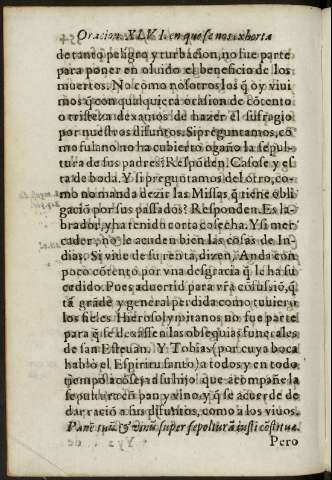 Oracion. XLVI. en que se nos exhorta
de tanto peligro y turbacion, no fue parte
para poner en oluido el beneficio de los
muertos. No como nosotros los q̃ oy viui
mos q̃ con qualquiera ocasion de cõtento
o tristeza dexamos de hazer el sufragio
por nuestros difuntos. Si preguntamos, co
mo fulano no ha cubierto ogaño la sepul-
tura de sus padres? Respõden. Casose y es
ta de boda. Y si preguntamos del otro, co-
mo no manda dezir las Missas q̃ tiene obli
gaciõ por sus passados? Responden. Es la-
brador, y ha tenido corta cosecha. Y si mer
cader, no le acuden bien las cosas de In-
dias. Si viue de su renta, dizen, Anda con
poco cõtento por vna desgracia q̃ le ha su
cedido. Pues aduertid para vr̃a cõfusiõ, q̃
tã grãde y general perdida como tuuierõ
los fieles Hierosolymitanos no fue parte
para q̃ se dexassen las obsequias funerales
de san Esteuan. Y Tobias (por cuya boca
hablo el Espiritu santo) a todos y en todo
tiempo acõseja a su hijo que acompañe la
sepultura cõ pan y vino, y q̃ se acuerde de
dar racion a sus difuntos, como a los viuos.
Panẽ tuũ, & vinũ super sepulturã iusti cõstitue.
Pero